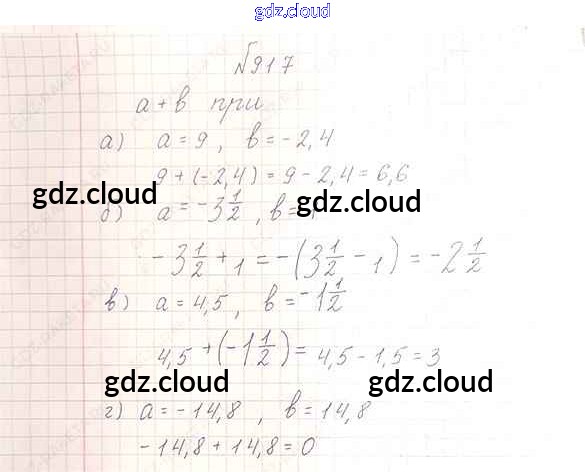 gdz.cloud
№917
a + b при
а) a = 9, b = -2,4
9 + (-2,4) = 9 - 2,4 = 6,6
gdz.cloud
gdz.cloud
б) a = -3 1/2, b =
-3 1/2 + 1 = -(3 1/2 - 1) = -2 1/2
в) a = 4,5, b = -1 1/2
4,5 + (-1 1/2) = 4,5 - 1,5 = 3
gdz.cloud
gdz.cloud
г) a = -14,8, b = 14,8
-14,8 + 14,8 = 0